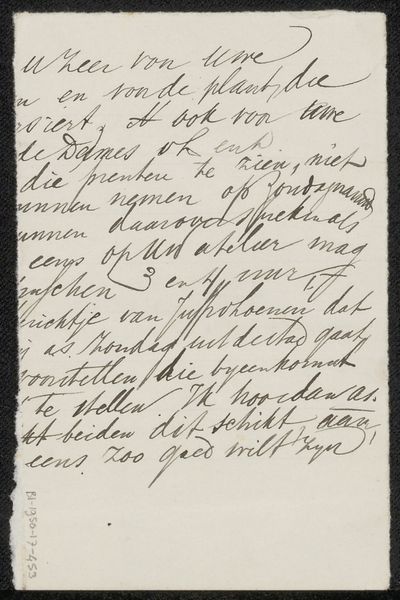 u zeer von Uwe
n en vonde plant, die
rsiert. H ook voor Uwe
de Dames ok enk
die prenten te zien, niet
unnen nemen op Zondagnamid
unnen daarover spreken als
eens op Uw atelier mag
nschen 3 en 4 uur, H
richtje van Jufr. hoenen dat
j as. Zondag uit de stad gaat,
voorstellen die byeenkomst
te stellen. Ik hoor dan as.
ht beiden dit schikt aan,
eens zoo goed wilt zyn
BI-1350-17-453